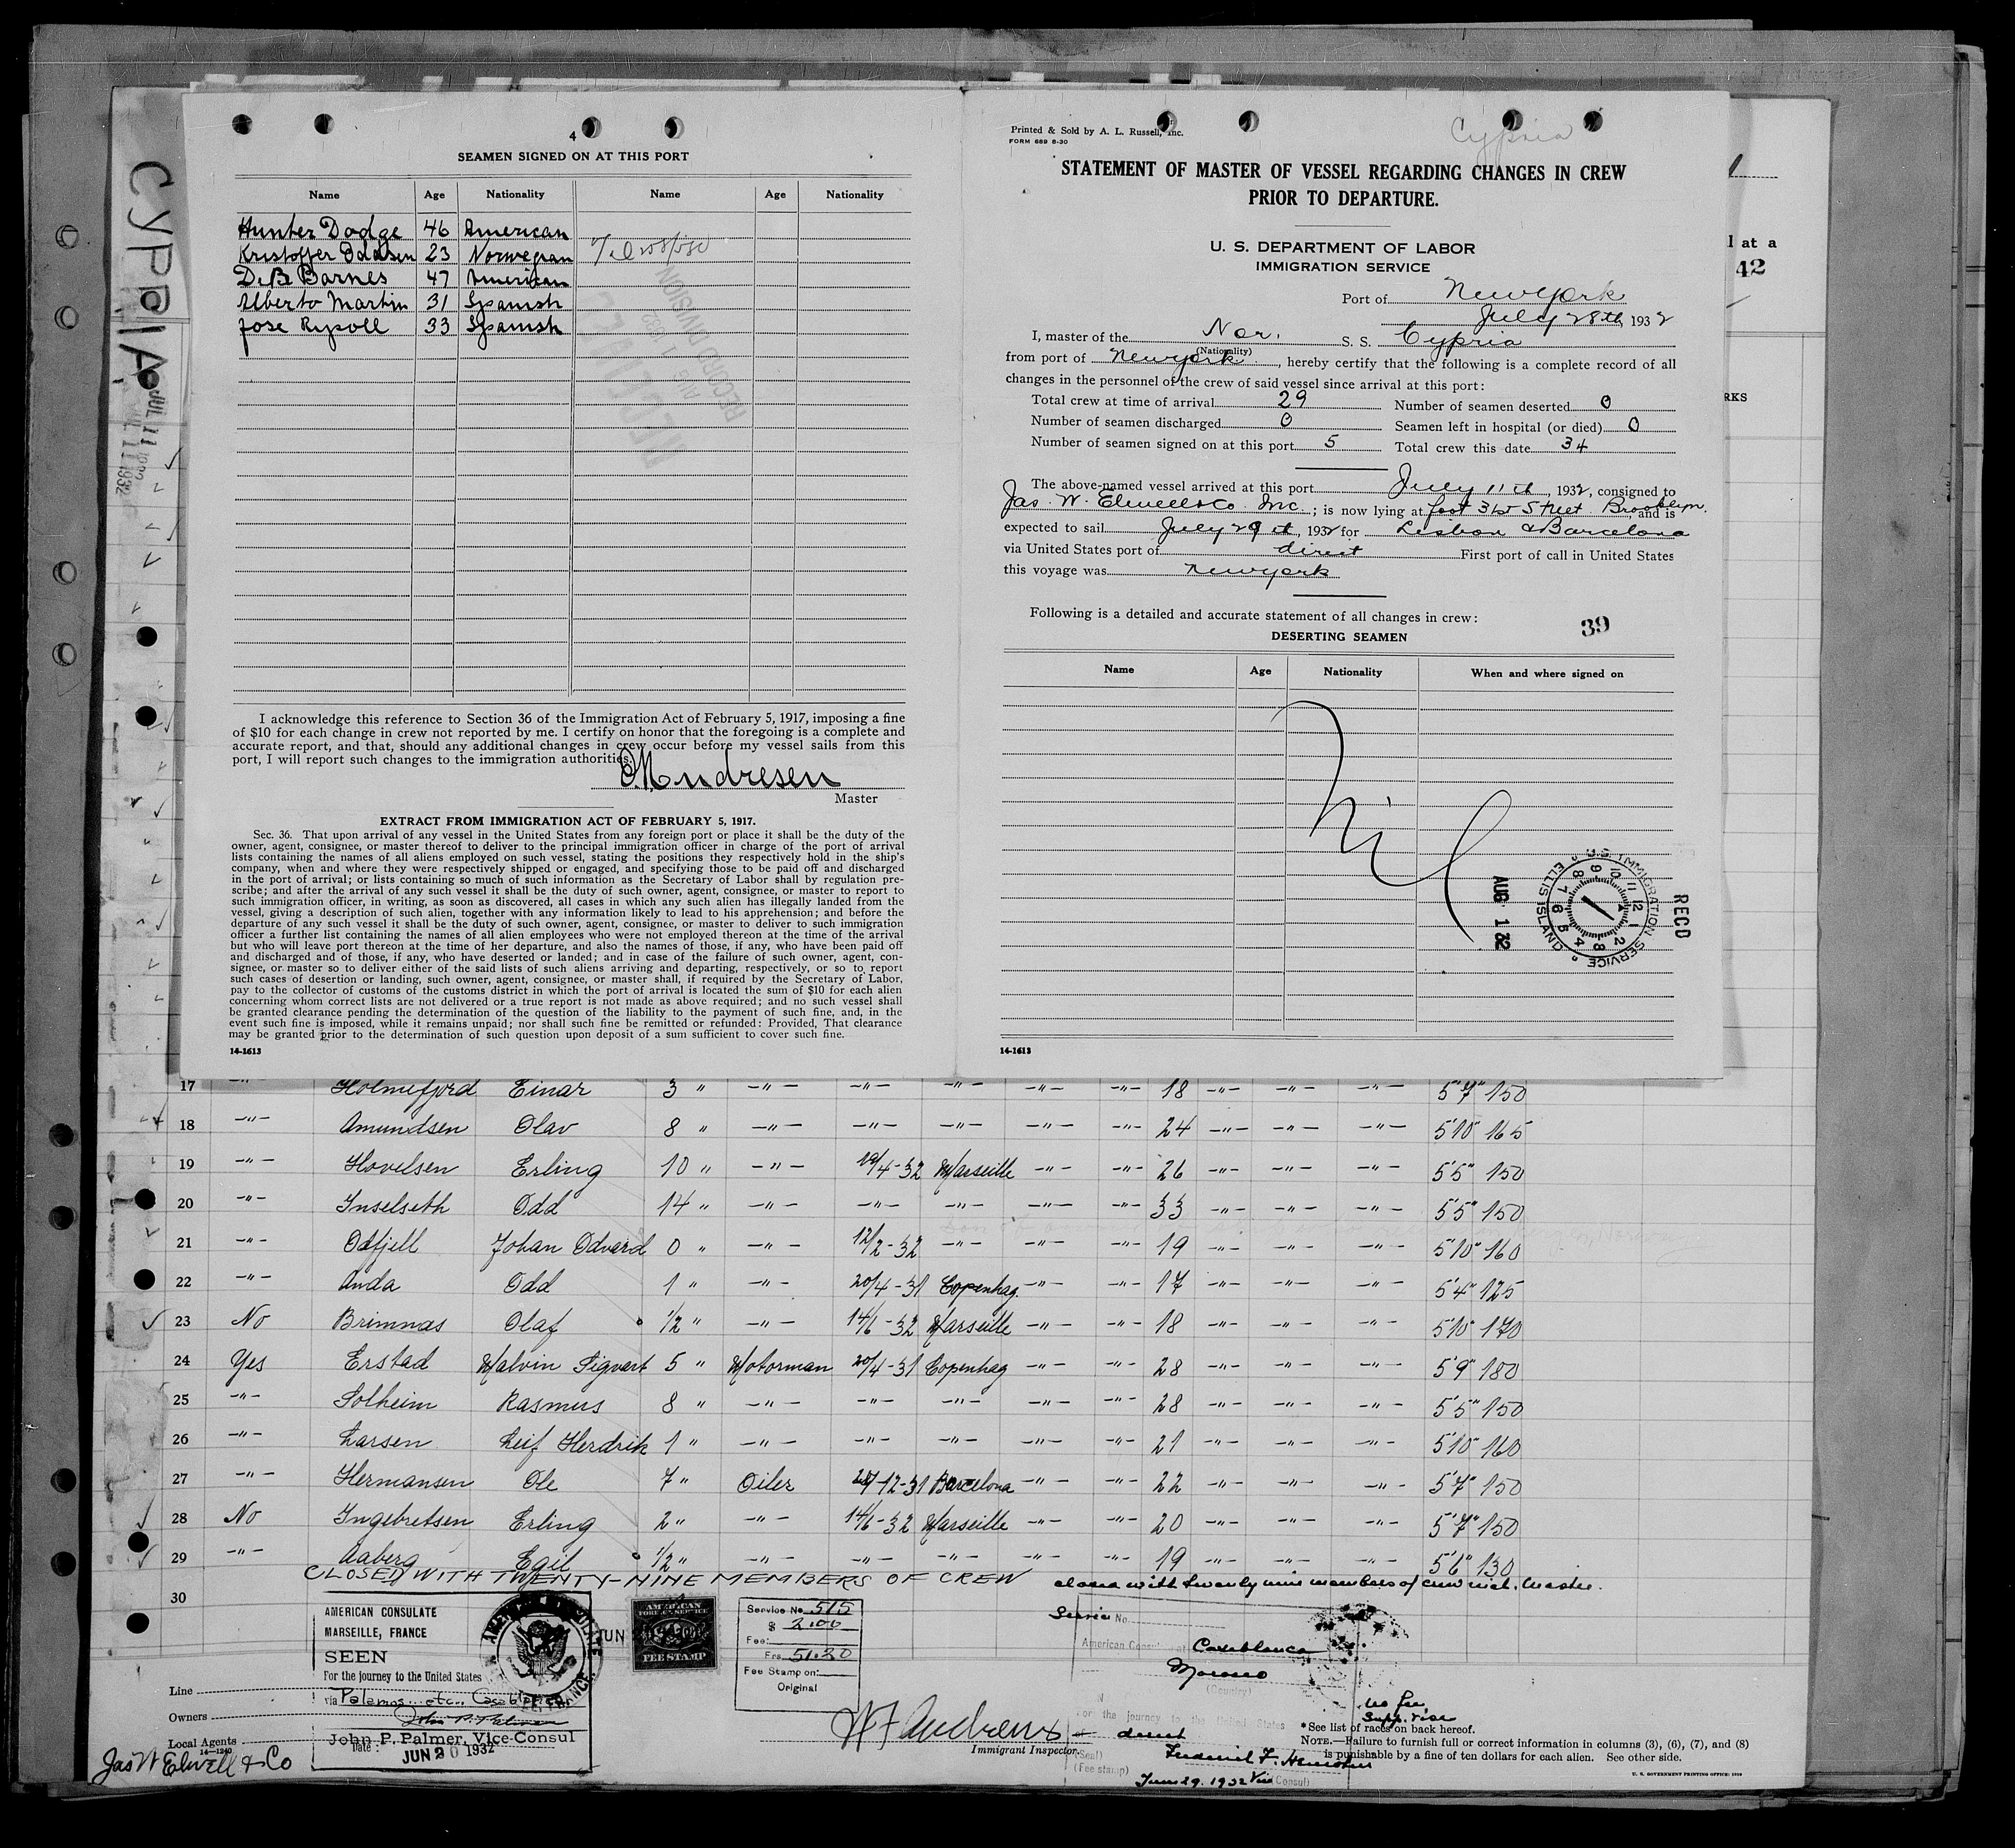 CYPRIA
JUL 11 1932
4
SEAMEN SIGNED ON AT THIS PORT
Name Age Nationality Name Age Nationality
Hunter Dodge 46 American
Kristoffer Oddsen 23 Norwegian
D. B. Barnes 47 American
Alberto Martin 31 Spanish
Jose Rypoll 33 Spanish
RECEIVED
AUG 1 1932
RECORD DIVISION
I acknowledge this reference to Section 36 of the Immigration Act of February 5, 1917, imposing a fine
of $10 for each change in crew not reported by me. I certify on honor that the foregoing is a complete and
accurate report, and that, should any additional changes in crew occur before my vessel sails from this
port, I will report such changes to the immigration authorities.
Andresen
Master
EXTRACT FROM IMMIGRATION ACT OF FEBRUARY 5, 1917.
Sec. 36. That upon arrival of any vessel in the United States from any foreign port or place it shall be the duty of the
owner, agent, consignee, or master thereof to deliver to the principal immigration officer in charge of the port of arrival
lists containing the names of all aliens employed on such vessel, stating the positions they respectively hold in the ship's
company, when and where they were respectively shipped or engaged, and specifying those to be paid off and discharged
in the port of arrival; or lists containing so much of such information as the Secretary of Labor shall by regulation pre-
scribe; and after the arrival of any such vessel it shall be the duty of such owner, agent, consignee, or master to report to
such immigration officer, in writing, as soon as discovered, all cases in which any such alien has illegally landed from the
vessel, giving a description of such alien, together with any information likely to lead to his apprehension; and before the
departure of any such vessel it shall be the duty of such owner, agent, consignee, or master to deliver to such immigration
officer a further list containing the names of all alien employees who were not employed thereon at the time of the arrival
but who will leave port thereon at the time of her departure, and also the names of those, if any, who have been paid off
and discharged and of those, if any, who have deserted or landed; and in case of the failure of such owner, agent, con-
signee, or master so to deliver either of the said lists of such aliens arriving and departing, respectively, or so to report
such cases of desertion or landing, such owner, agent, consignee, or master shall, if required by the Secretary of Labor,
pay to the collector of customs of the customs district in which the port of arrival is located the sum of $10 for each alien
concerning whom correct lists are not delivered or a true report is not made as above required; and no such vessel shall
be granted clearance pending the determination of the question of the liability to the payment of such fine, and, in the
event such fine is imposed, while it remains unpaid; nor shall such fine be remitted or refunded: Provided, That clearance
may be granted prior to the determination of such question upon deposit of a sum sufficient to cover such fine.
14-1613
Printed & Sold by A. L. Russell, Inc.
FORM 689 8-30
Cypria
STATEMENT OF MASTER OF VESSEL REGARDING CHANGES IN CREW
PRIOR TO DEPARTURE.
U. S. DEPARTMENT OF LABOR
IMMIGRATION SERVICE
Port of New York
July 28th, 1932
I, master of the Nor. S. S. Cypria
(Nationality)
from port of New York, hereby certify that the following is a complete record of all
changes in the personnel of the crew of said vessel since arrival at this port:
Total crew at time of arrival 29 Number of seamen deserted 0
Number of seamen discharged 0 Seamen left in hospital (or died) 0
Number of seamen signed on at this port 5 Total crew this date 34
The above-named vessel arrived at this port July 11th, 1932, consigned to
Jas. W. Elwell & Co. Inc.; is now lying at foot 31st Street Brooklyn, and is
expected to sail July 29th, 1932 for Lisbon & Barcelona
via United States port of direct First port of call in United States
this voyage was New York
Following is a detailed and accurate statement of all changes in crew:
39
DESERTING SEAMEN
Name Age Nationality When and where signed on
Nil
AUG 1 32
U.S. IMMIGRATION SERVICE
ELLIS ISLAND
RECD
14-1613
l at a
42
RKS
17 –"– Holmefjord Einar 3 " –"– –"– –"– –"– –"– 18 –"– –"– –"– 5'7" 150
18 –"– Amundsen Olav 8 " –"– –"– –"– –"– –"– 24 –"– –"– –"– 5'10" 165
19 –"– Hovelsen Erling 10 " –"– 19/4-32 Marseille –"– –"– 26 –"– –"– –"– 5'5" 150
20 –"– Inselseth Odd 14 " –"– –"– –"– –"– –"– 33 –"– –"– –"– 5'5" 150
21 –"– Odfjell Johan Edvard 0 " –"– 12/2-32 –"– –"– –"– 19 –"– –"– –"– 5'10" 160
22 –"– Anda Odd 1 " –"– 20/4-31 Copenhag. –"– –"– 17 –"– –"– –"– 5'4" 125
23 No Brimnas Olaf 1/2 " –"– 14/6-32 Marseille –"– –"– 18 –"– –"– –"– 5'10" 170
24 Yes Erstad Malvin Sigvart 5 " Motorman 20/4-31 Copenhag –"– –"– 28 –"– –"– –"– 5'9" 180
25 –"– Solheim Rasmus 8 " –"– –"– –"– –"– –"– 28 –"– –"– –"– 5'5" 150
26 –"– Larsen Leif Herdrik 1 " –"– –"– –"– –"– –"– 21 –"– –"– –"– 5'10" 160
27 –"– Hermansen Ole 7 " Oiler 12-31 Barcelona –"– –"– 22 –"– –"– –"– 5'7" 150
28 No Ingebretsen Erling 2 " –"– 14/6-32 Marseille –"– –"– 20 –"– –"– –"– 5'7" 150
29 –"– Aaberg Egil 1/2 " –"– –"– –"– –"– –"– 19 –"– –"– –"– 5'6" 130
CLOSED WITH TWENTY-NINE MEMBERS OF CREW closed with twenty nine members of crew incl. Master.
30
AMERICAN CONSULATE
MARSEILLE, FRANCE
SEEN
For the journey to the United States
via Palamos etc., Casablanca
John P. Palmer
John P. Palmer, Vice-Consul
Date: JUN 20 1932
AMERICAN
FOREIGN SERVICE
FEE STAMP
Service No. 515
$ 2.00
Fee:
Frs 51.20
Fee Stamp on:
Original
Service No.
American Consul at Casablanca
Morocco
(Country)
For the journey to the United States
direct
(Seal)
(Fee stamp)
June 29, 1932 Vice Consul
no fee
Supp. visa
Line
Owners
Local Agents
14-1240
Jas W Elwell & Co
Andrews
Immigrant Inspector.
*See list of races on back hereof.
NOTE.—Failure to furnish full or correct information in columns (3), (6), (7), and (8)
is punishable by a fine of ten dollars for each alien. See other side.
U. S. GOVERNMENT PRINTING OFFICE: 1930